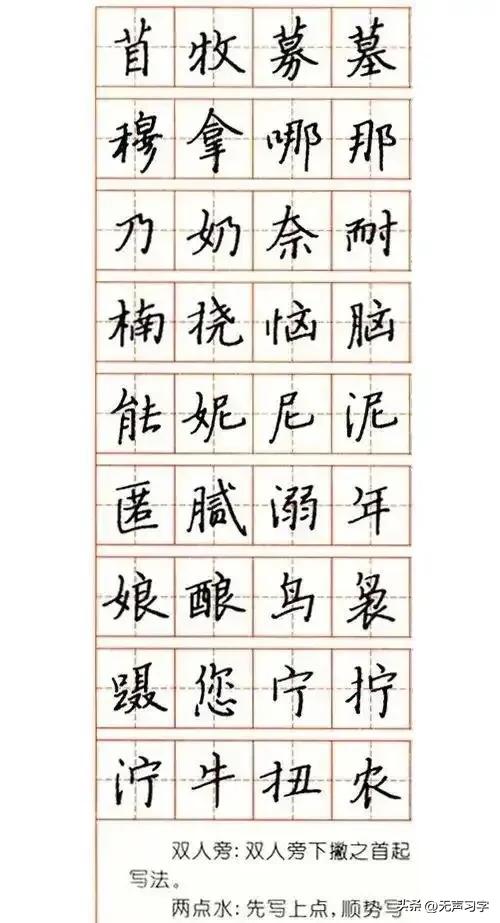 苜牧募墓
穆拿哪那
乃奶奈耐
楠挠恼脑
能妮尼泥
匿腻溺年
娘酿鸟袅
蹑您宁拧
泞牛扭农
双人旁:双人旁下撇之首起
写法。
两点水:先写上点,顺势写
头条@无声习字